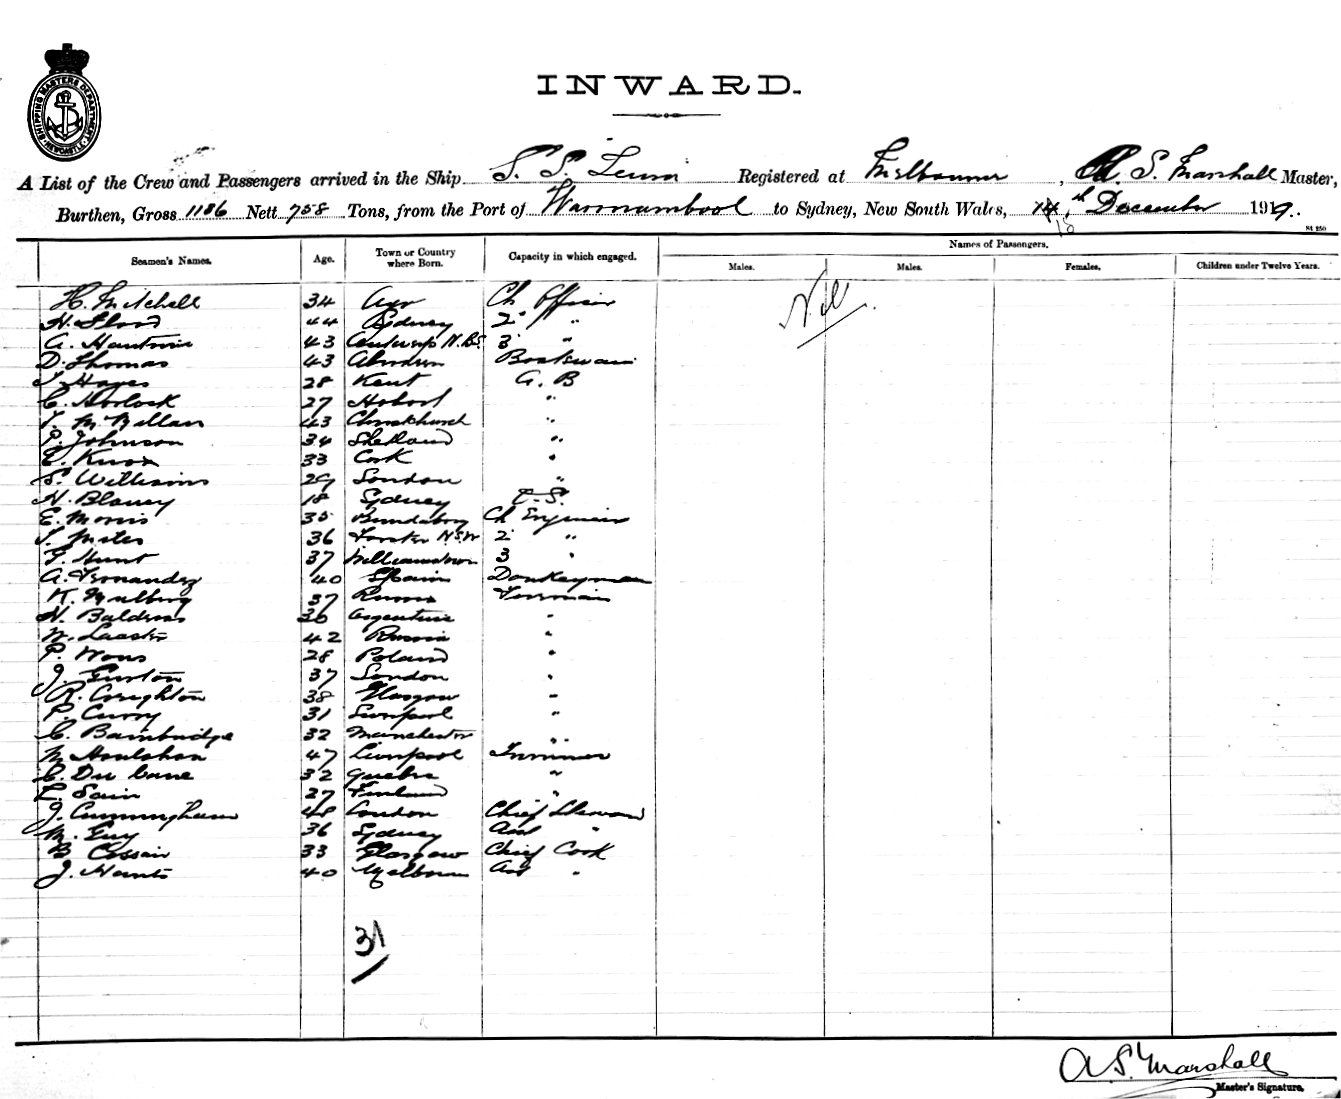 SHIPPING MASTERS DEPARTMENT NEWCASTLE
INWARD.
A List of the Crew and Passengers arrived in the Ship S.S. Registered at Melbourne, A. S. Marshall Master,
Burthen, Gross 1186 Nett 758 Tons, from the Port of Warrnambool to Sydney, New South Wales, 18 th December 1919.
Seamen's Names. Age. Town or Country where Born. Capacity in which engaged. Names of Passengers.
Males. Males. Females. Children under Twelve Years.
H. Mitchell 34 Ayr Ch Officer Nil
H. Flood 44 Sydney 2 "
A. 43 3 "
D. Thomas 43 Aberdeen Boatswain
J. Hayes 28 Kent A. B
C. Horlock 27 Hobart "
J. McMillan 43 Christchurch "
P. Johnson 34 Shetland "
E. Knox 33 Cork "
S. Williams 29 London "
H. Blaney 18 Sydney O.S.
E. Morris 35 Bundaberg Ch Engineer
J. Miles 36 Forster N.S.W 2 "
G. Hunt 37 Williamstown 3 "
A. Fernandez 40 Spain Donkeyman
K. 37 Russia Fireman
36 Argentine "
W. 42 Russia "
P. Wons 28 Poland "
J. 37 London "
R. Creighton 38 Glasgow "
P. Curry 31 Liverpool "
C. Bambridge 32 Manchester "
M. Houlahan 47 Liverpool Trimmer
C. Du Cane 32 Quebec "
27 Finland "
J. Cunningham 48 London Chief Steward
M. Guy 36 Sydney Ast "
B. 33 Glasgow Chief Cook
J. 40 Melbourne Ast "
31
A. S. Marshall
Master's Signature.